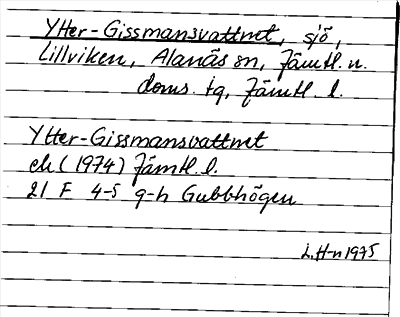 Ytter-Gissmansvattnet, sjö,
Lillviken, Alanäs sn, Jämtl. n.
doms. tg, Jämtl. l.
Ytter-Gissmansvattnet
ek (1974) Jämtl. l.
21 F 4-5 g-h Gubbhögen
L.H-n 1975